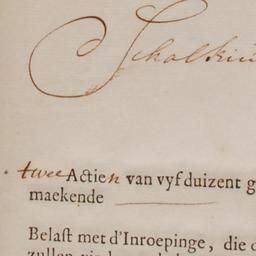 Schalkiu
twee Actien van vyf duizent g
maekende
Belast met d'Inroepinge, die